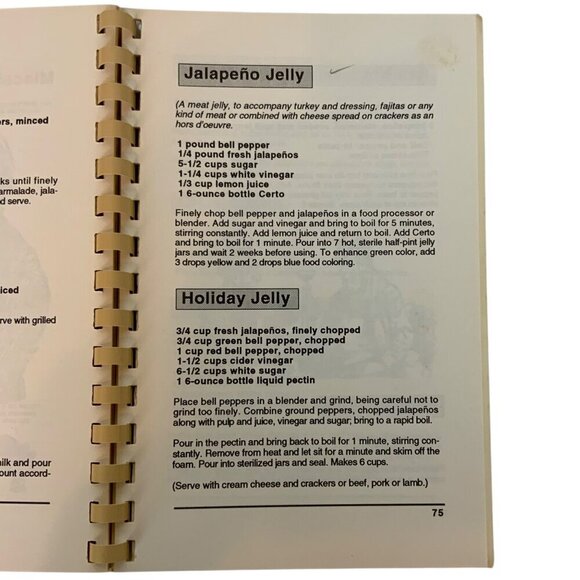 ers, minced
ks until finely
armalade, jala-
d serve.
iced
rve with grilled
nilk and pour
ount accord-
Jalapeño Jelly
(A meat jelly, to accompany turkey and dressing, fajitas or any
kind of meat or combined with cheese spread on crackers as an
hors d'oeuvre.
1 pound bell pepper
1/4 pound fresh jalapeños
5-1/2 cups sugar
1-1/4 cups white vinegar
1/3 cup lemon juice
1 6-ounce bottle Certo
Finely chop bell pepper and jalapeños in a food processor or
blender. Add sugar and vinegar and bring to boil for 5 minutes,
stirring constantly. Add lemon juice and return to boil. Add Certo
and bring to boil for 1 minute. Pour into 7 hot, sterile half-pint jelly
jars and wait 2 weeks before using. To enhance green color, add
3 drops yellow and 2 drops blue food coloring.
Holiday Jelly
3/4 cup fresh jalapeños, finely chopped
3/4 cup green bell pepper, chopped
1 cup red bell pepper, chopped
1-1/2 cups cider vinegar
6-1/2 cups white sugar
1 6-ounce bottle liquid pectin
Place bell peppers in a blender and grind, being careful not to
grind too finely. Combine ground peppers, chopped jalapeños
along with pulp and juice, vinegar and sugar; bring to a rapid boil.
Pour in the pectin and bring back to boil for 1 minute, stirring con-
stantly. Remove from heat and let sit for a minute and skim off the
foam. Pour into sterilized jars and seal. Makes 6 cups.
(Serve with cream cheese and crackers or beef, pork or lamb.)
75